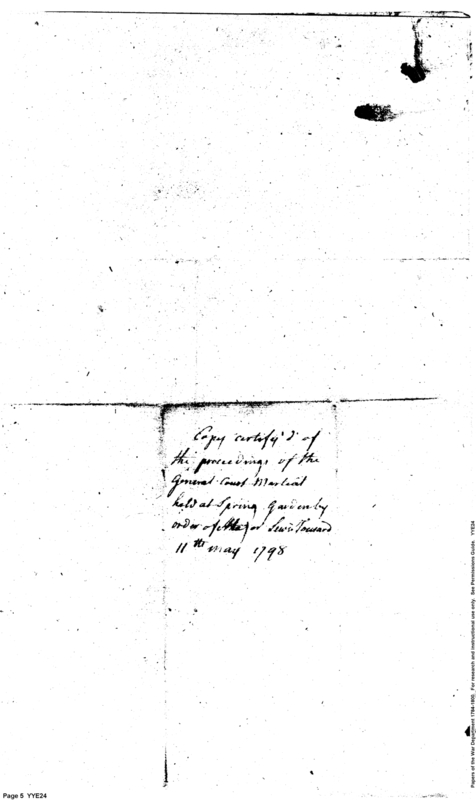 Copy certify'd of
the proceedings of the
General Court Martial
held at Spring Garden by
order of Major Lewis Tousard
11th may 1798
Page 5 YYE24
Papers of the War Department 1784-1800. For research and instructional use only. See Permissions Guide. YYE24